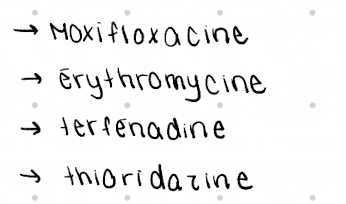 → Moxifloxacine
→ Erythromycine
→ terfenadine
→ thioridazine